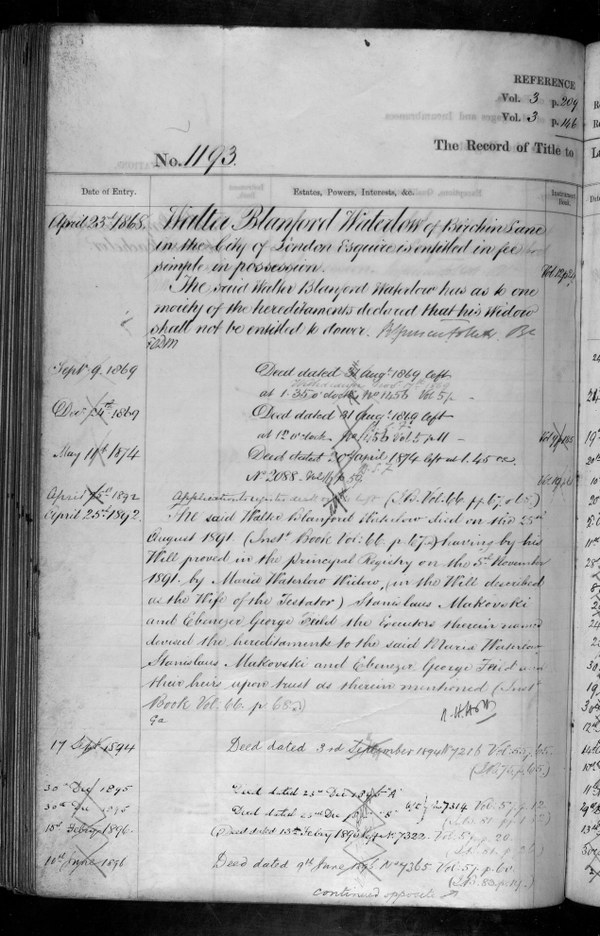 REFERENCE
Vol. 3 p. 209
Vol. 3 p. 146
No. 1193.
The Record of Title to
Date of Entry.
Estates, Powers, Interests, &c.
Instrument Book.
April 25th 1868.
Walter Blanford Waterlow of Birchin Lane
in the City of London Esquire is entitled in fee
simple in possession.
The said Walter Blanford Waterlow has as to one
moiety of the hereditaments declared that his Widow
shall not be entitled to dower.
Septr. 9. 1869
Deed dated 31 Augt. 1869 left
at 1.35 o'clock No 1456 Vol. 5 p.
Decr. 1869
Deed dated 31 Augt. 1869 left
at 12 o'clock No 1456 Vol. 5 p. 11
May 11th 1874
Deed dated 30 April 1874 left at 1.45
No. 2088.
April 1892
Application to register left (I.B. Vol. 66. pp. 67 o 65.)
April 25th 1892.
The said Walter Blanford Waterlow died on the 25th
August 1891 (Instt. Book Vol: 66. p. 67.) having by his
Will proved in the Principal Registry on the 5th November
1891. by Maria Waterlow Widow, (in the Will described
as the Wife of the Testator) Stanislaus Makovski
and Ebenezer George Field the Executors therein named
devised the hereditaments to the said Maria Waterlow
Stanislaus Makovski and Ebenezer George Field and
their heirs upon trust as therein mentioned (Instt.
Book Vol. 66. p. 68.)
17 Septr. 1894
Deed dated 3rd September 1894 No 7216 Vol. 57 p.
30th Decr. 1895
Deed dated 23rd Decr. 1895 "A"
30th Decr. 1895
Deed dated 23rd Decr. "B" 7314 Vol. 57 p. 12.
15th Febry 1896
Deed dated 13th Febry 1896 No. 7322 Vol. 57 p. 20.
10th June 1896
Deed dated 9th June 1896 No 7365 Vol. 57 p. 60
(I.B. 83. p. 19.)
continued opposite